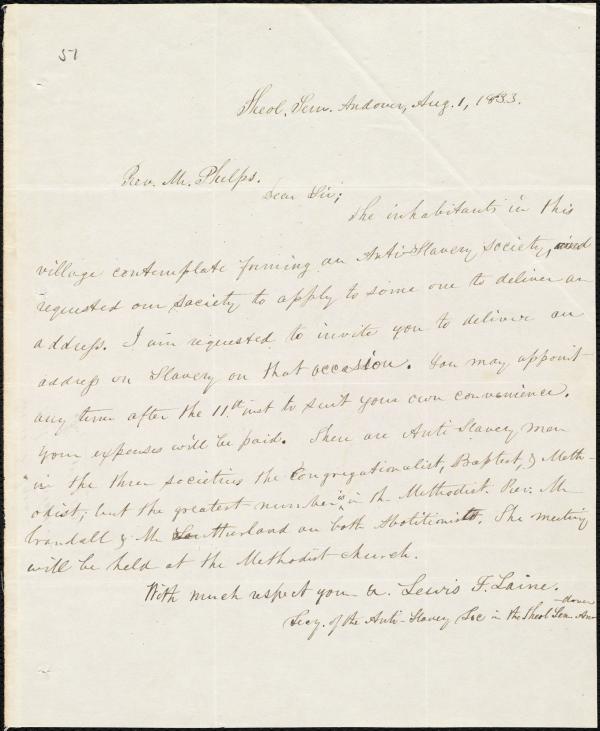 51
Theol. Sem. Andover, Aug. 1, 1833.
Rev. Mr. Phelps.
Dear Sir;
The inhabitants in this
village contemplate forming an Anti-Slavery society, and
requested our society to apply to some one to deliver an
address. I am requested to invite you to deliver an
address on Slavery on that occasion. You may appoint
any time after the 11th inst to suit your own convenience.
Your expenses will be paid. There are Anti Slavery men
in the three societies the Congregationalist, Baptist, & Meth-
odist; but the greatest number is in the Methodist. Rev. Mr
Crandall & Mr Southerland are both Abolitionists. The meeting
will be held at the Methodist church.
With much respect yours &c. Lewis F. Laine.
Secy. of the Anti-Slavery Soc in the Theol Sem. An-
dover